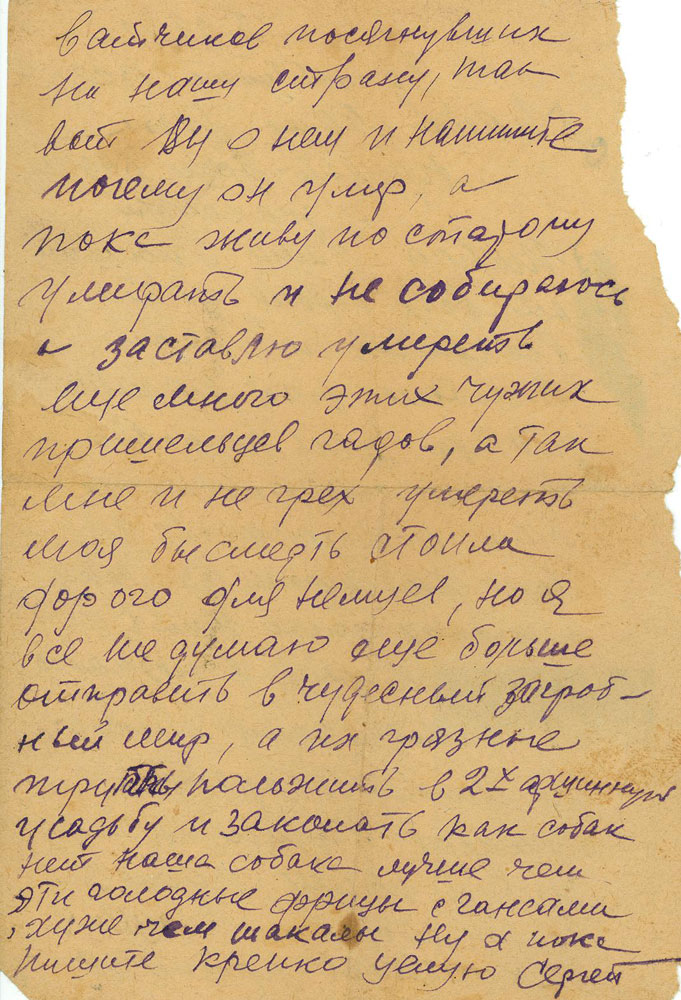 ватчиков посягнувших
на нашу страну, так
вот Вы о нем и напишите
почему он умер, а
пока живу по старому
умирать и не собираюсь
а заставлю умереть
еще много этих чужих
пришельцев гадов, а так
мне и не грех умереть
моя бы смерть стоила
дорого для немцев, но я
все же думаю еще больше
отправить в чудесный загроб-
ный мир, а их грязные
трупы положить в 2х аршинную
усадьбу и закопать как собак
нет наша собака лучше чем
эти голодные фрицы с гансами
хуже чем шакалы Ну а пока
пишите крепко целую Сергей